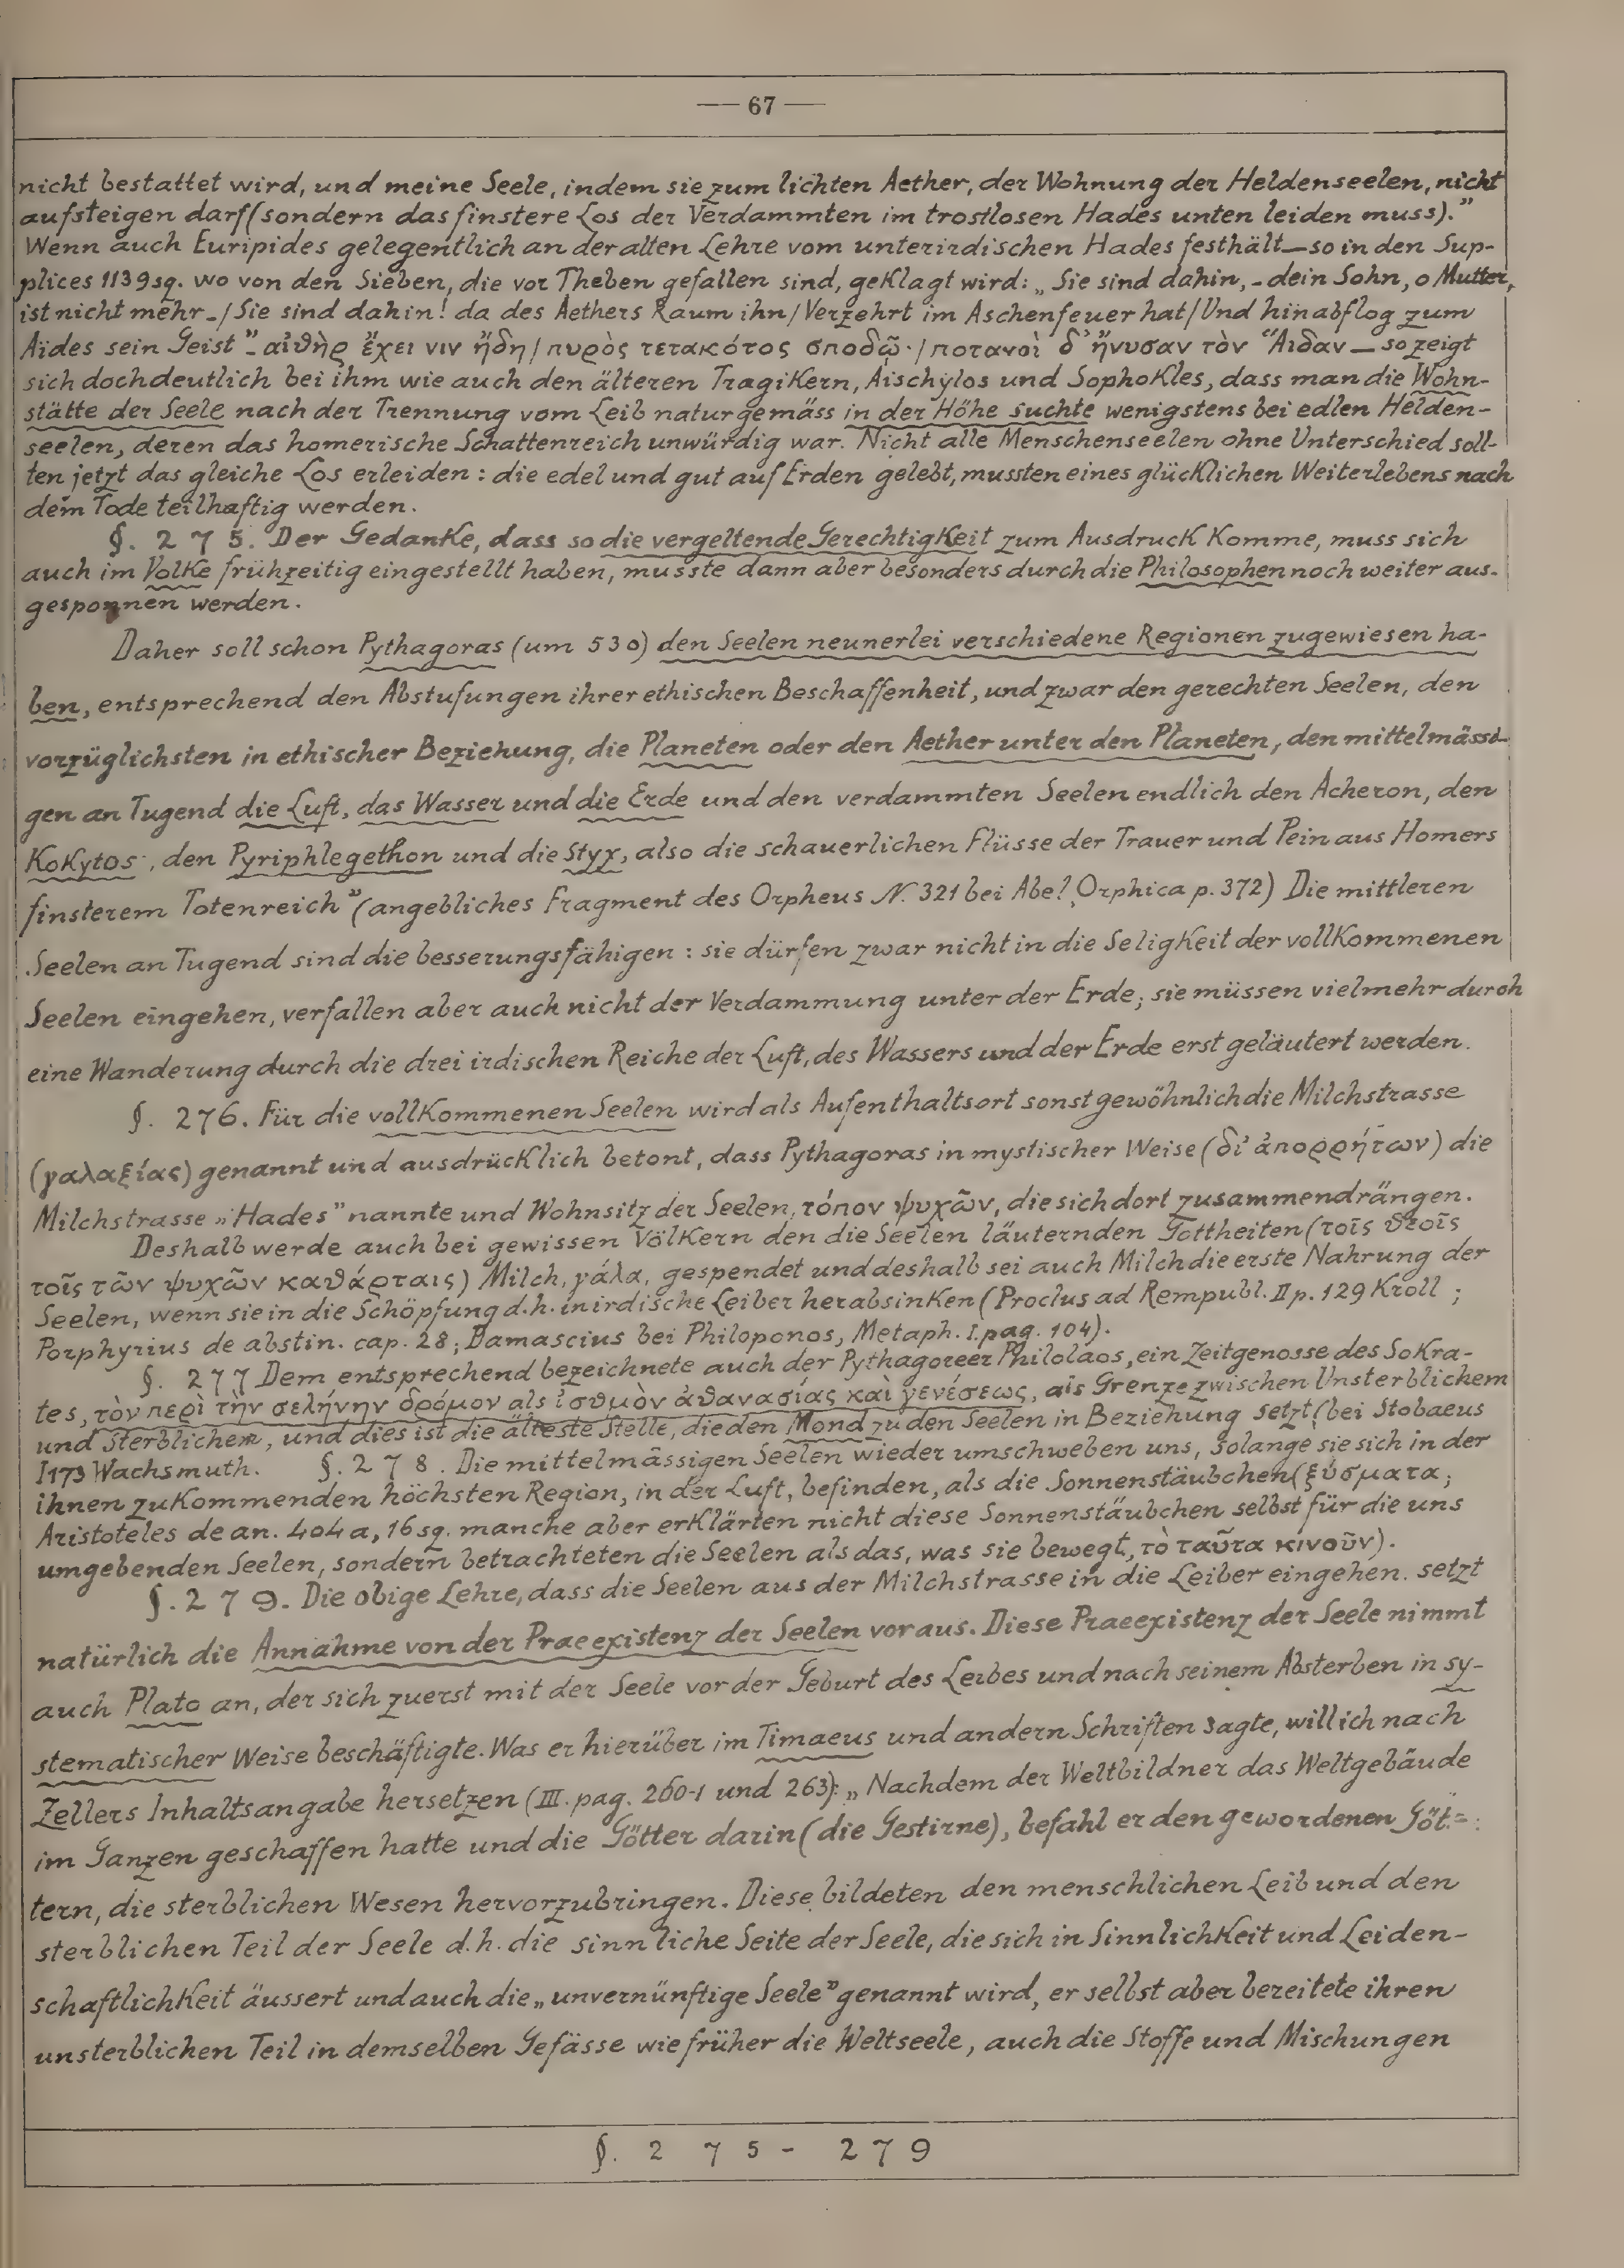 — 67 —
nicht bestattet wird, und meine Seele, indem sie zum lichten Aether, der Wohnung der Heldenseelen, nicht
aufsteigen darf (sondern das finstere Los der Verdammten im trostlosen Hades unten leiden muss)."
Wenn auch Euripides gelegentlich an der alten Lehre vom unterirdischen Hades festhält — so in den Sup-
plices 1139 sq. wo von den Sieben, die vor Theben gefallen sind, geklagt wird: „Sie sind dahin, - dein Sohn, o Mutter,
ist nicht mehr - / Sie sind dahin! da des Aethers Raum ihn / Verzehrt im Aschenfeuer hat / Und hinabflog zum
Aïdes sein Geist" - αἰθὴρ ἔχει νιν ἤδη / πυρὸς τετακότος σποδῷ· / ποτανοὶ δ' ἤνυσαν τὸν Ἅιδαν — so zeigt
sich doch deutlich bei ihm wie auch den älteren Tragikern, Aischylos und Sophokles, dass man die Wohn-
stätte der Seele nach der Trennung vom Leib naturgemäss in der Höhe suchte wenigstens bei edlen Helden-
seelen, deren das homerische Schattenreich unwürdig war. Nicht alle Menschenseelen ohne Unterschied soll-
ten jetzt das gleiche Los erleiden : die edel und gut auf Erden gelebt, mussten eines glücklichen Weiterlebens nach
dem Tode teilhaftig werden.
§. 275. Der Gedanke, dass so die vergeltende Gerechtigkeit zum Ausdruck komme, muss sich
auch im Volke frühzeitig eingestellt haben, musste dann aber besonders durch die Philosophen noch weiter aus-
gesponnen werden.
Daher soll schon Pythagoras (um 530) den Seelen neunerlei verschiedene Regionen zugewiesen ha-
ben, entsprechend den Abstufungen ihrer ethischen Beschaffenheit, und zwar den gerechten Seelen, den
vorzüglichsten in ethischer Beziehung, die Planeten oder den Aether unter den Planeten, den mittelmässi-
gen an Tugend die Luft, das Wasser und die Erde und den verdammten Seelen endlich den Acheron, den
Kokytos, den Pyriphlegethon und die Styx, also die schauerlichen Flüsse der Trauer und Pein aus Homers
finsterem Totenreich" (angebliches Fragment des Orpheus N. 321 bei Abel, Orphica p. 372) Die mittleren
Seelen an Tugend sind die besserungsfähigen : sie dürfen zwar nicht in die Seligkeit der vollkommenen
Seelen eingehen, verfallen aber auch nicht der Verdammung unter der Erde; sie müssen vielmehr durch
eine Wanderung durch die drei irdischen Reiche der Luft, des Wassers und der Erde erst geläutert werden.
§. 276. Für die vollkommenen Seelen wird als Aufenthaltsort sonst gewöhnlich die Milchstrasse
(γαλαξίας) genannt und ausdrücklich betont, dass Pythagoras in mystischer Weise (δι' ἀπορρήτων) die
Milchstrasse „Hades" nannte und Wohnsitz der Seelen, τόπον ψυχῶν, die sich dort zusammendrängen.
Deshalb werde auch bei gewissen Völkern den die Seelen läuternden Gottheiten (τοῖς θεοῖς
τοῖς τῶν ψυχῶν καθάρταις) Milch, γάλα, gespendet und deshalb sei auch Milch die erste Nahrung der
Seelen, wenn sie in die Schöpfung d.h. in irdische Leiber herabsinken (Proclus ad Rempubl. II p. 129 Kroll ;
Porphyrius de abstin. cap. 28; Damascius bei Philoponos, Metaph. I. pag. 104).
§. 277 Dem entsprechend bezeichnete auch der Pythagoreer Philolaos, ein Zeitgenosse des Sokra-
tes, τὸν περὶ τὴν σελήνην δρόμον als ἰσθμὸν ἀθανασίας καὶ γενέσεως, als Grenze zwischen Unsterblichem
und Sterblichem, und dies ist die älteste Stelle, die den Mond zu den Seelen in Beziehung setzt (bei Stobaeus
I 173 Wachsmuth. §. 278. Die mittelmässigen Seelen wieder umschweben uns, solange sie sich in der
ihnen zukommenden höchsten Region, in der Luft, befinden, als die Sonnenstäubchen (ξύσματα;
Aristoteles de an. 404 a, 16 sq. manche aber erklärten nicht diese Sonnenstäubchen selbst für die uns
umgebenden Seelen, sondern betrachteten die Seelen als das, was sie bewegt, τὸ ταῦτα κινοῦν).
§. 279. Die obige Lehre, dass die Seelen aus der Milchstrasse in die Leiber eingehen. setzt
natürlich die Annahme von der Praeexistenz der Seelen voraus. Diese Praeexistenz der Seele nimmt
auch Plato an, der sich zuerst mit der Seele vor der Geburt des Leibes und nach seinem Absterben in sy-
stematischer Weise beschäftigte. Was er hierüber im Timaeus und andern Schriften sagte, will ich nach
Zellers Inhaltsangabe hersetzen (III. pag. 260-1 und 263): „Nachdem der Weltbildner das Weltgebäude
im Ganzen geschaffen hatte und die Götter darin (die Gestirne), befahl er den gewordenen Göt-
tern, die sterblichen Wesen hervorzubringen. Diese bildeten den menschlichen Leib und den
sterblichen Teil der Seele d.h. die sinnliche Seite der Seele, die sich in Sinnlichkeit und Leiden-
schaftlichkeit äussert und auch die „unvernünftige Seele" genannt wird, er selbst aber bereitete ihren
unsterblichen Teil in demselben Gefässe wie früher die Weltseele, auch die Stoffe und Mischungen
§. 275 - 279